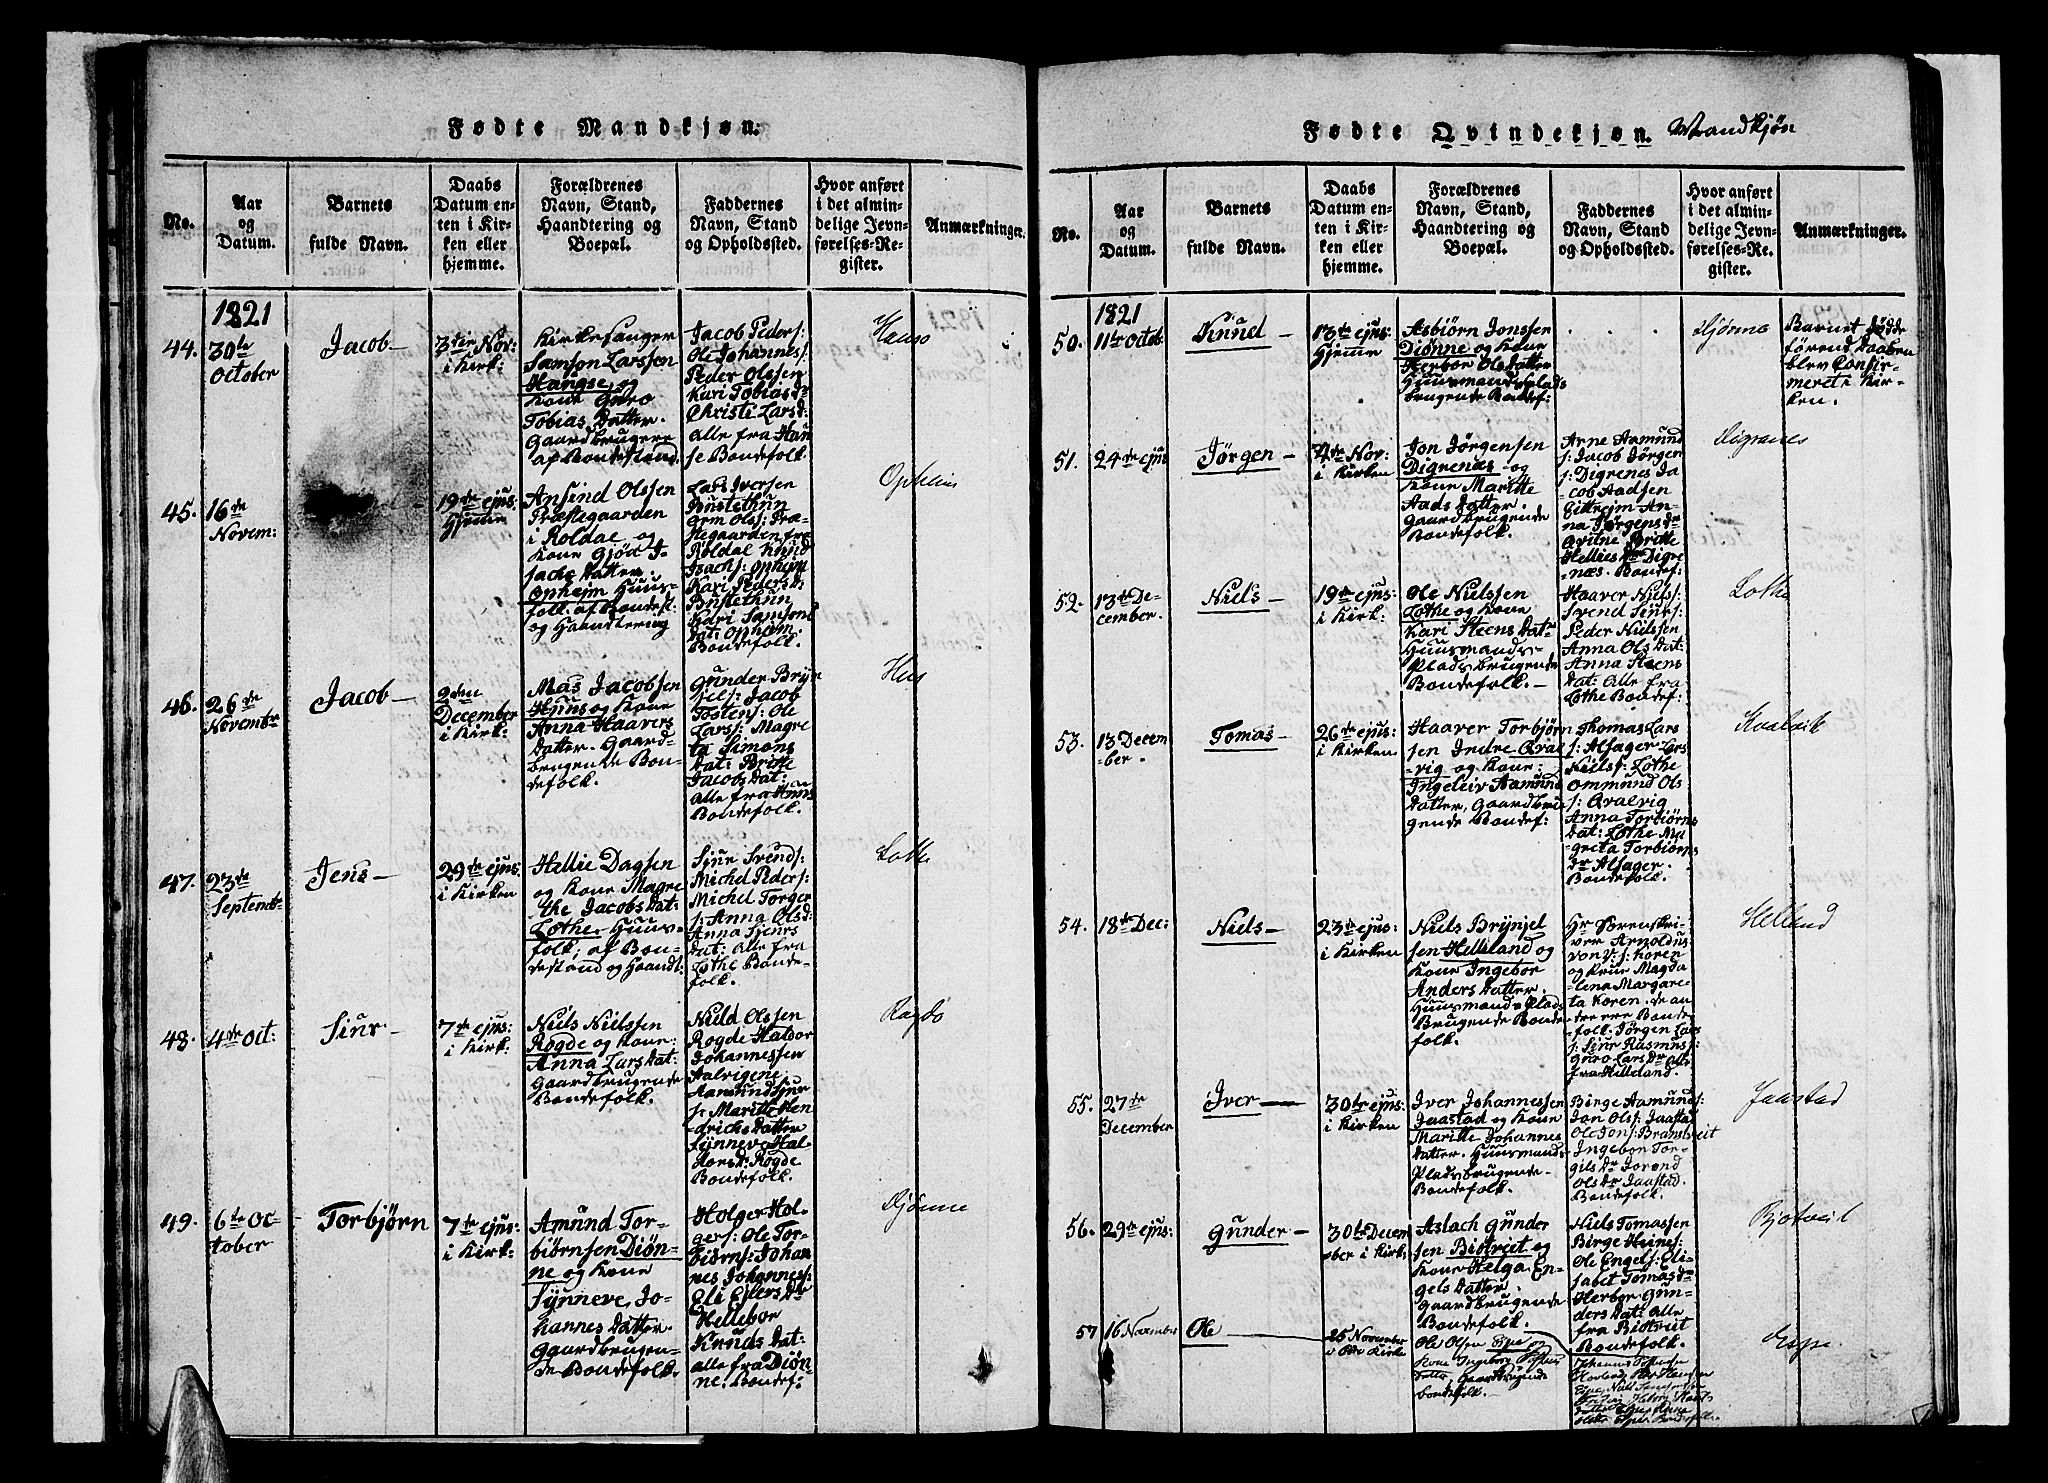 Fødte Mandkjøn.
No.
Aar
og
Datum.
Barnets
fulde Navn.
Daabs
Datum en-
ten i Kir-
ken eller
hjemme.
Forældrenes
Navn, Stand,
Haandtering og
Boepæl.
Faddernes
Navn, Stand
og Opholdssted.
Hvor anført
i det almin-
delige Jevn-
førelses-Re-
gister.
Anmærkninger.
1821
44.
30te
October
Jacob
3die Nov:
i Kirk:
Kirkesanger
Samson Larssen
Hangse og
Kone Guro
Tobias Datter.
Gaardbrugere
af Bondestand
Jacob Peders:
Ole Johannes:
Peder Olssen
Kari Tobias dr
Christi Larsd:
alle fra Han
se Bondefolk.
45.
16de
Novem:
19de ejus:
Hjemme
Ansind Olssen
Præstegaarden
i Roldal og
Kone Gjød I-
sachs Datter.
Opheim Huus-
folk af Bondest.
og Haandtering
Lars Iversen
Bustethun
Orm Ols: Præ-
stegaarden fra
Roldal Knud
Isachs: Opheim
Kari Peders D:
Bustethun
Kari Samsons
Dat: Opheim.
Bondefolk.
Opheim
46.
26de
Novembr
Jacob
2den
December
i Kirk:
Mas Jacobsen
Huus og Kone
Anna Haavers
Datter. Gaard-
brugende Bon-
defolk.
Gunder Bryn
jels: Jacob
Tostens: Ole
Lars: Magre
ta Simons
Dat: Britte
Jacobs Dat:
alle fra Huus
Bondefolk.
Hus
47.
23de
Septembr
Jens
29de ejus:
i Kirken
Hellie Dagsen
og Kone Magre
the Jacobs Dat:
Lothe. Huus-
folk; af Bon-
destand og Haandt:
Siur Svends:
Michel Peders:
Michel Torger
s: Anna Olsd:
Anna Siurs
Dat: alle fra
Lothe Bonde-
folk.
Lothe
48.
4de Oct:
Siur
7de ejus:
i Kirk:
Niels Nielssen
Rogde og Kone:
Anna Lars Dat:
Gaardbrugende
Bondefolk.
Nield Olssen
Rogde Haldor
Johannessen
Aalvigene
Aamund Siur
s: Maritte Hen
drichs Datter
Synneve Hal-
dorsd: Rogde
Bondefolk.
Ragde
49.
6te Oc-
tober
Torbjørn
7de ejus:
i Kirk:
Amund Tor-
biørnsen Diøn-
ne og Kone
Synneve, Jo-
hannes Datter.
Gaardbrugen-
de Bondefolk.
Holger Hol-
gers: Ole Tor-
biørns: Johan
nes Johannes:
Eli Ejlers Dr
Hellebor
Knuds Dat:
alle fra Diøn-
ne. Bondef:
Djønne
Fødte Qvindekjøn. Mandkjøn
No.
Aar
og
Datum.
Barnets
fulde Navn.
Daabs
Datum en-
ten i Kir-
ken eller
hjemme.
Forældrenes
Navn, Stand,
Haandtering og
Boepæl.
Faddernes
Navn, Stand
og Opholdssted.
Hvor anført
i det almin-
delige Jevn-
førelses-Re-
gister.
Anmærkninger.
1821
50.
11te Octob:
Knud
13de ejus:
Hjemme
Asbiørn Jonssen
Diønne og Kone
Herbor Ols Datter
Huusmands Plads
brugende Bondef:
Djønne
Barnet døde
førend Daaben
blev Confir-
meret i Kir-
ken.
51.
24de ejus
Jørgen
4de Nov:
i Kirken
Jon Jørgensen
Digrenæs og
Kone Maritte
Aads Datter.
Gaardbrugende
Bondefolk.
Arne Aamund
s: Jacob Jørgen
s: Digrenes Ja
cob Aadsen
Eittreim An-
na Jørgens dr
Britte
Hellies Dr Digre-
næs. Bondef:
Digranes
52.
13de De-
cember.
Niels
19de ejus:
i Kirk:
Ole Nielssen
Lothe og Kone
Kari Steens Dat:
Huusmands-
Pladsbrugende
Bondefolk.
Haaver Niels:
Svend Siurs:
Peder Nielssen
Anna Ols Dat:
Anna Steens
Dat: Alle fra
Lothe Bondef:
Lothe
53.
13 Decem
ber.
Tomas
26de ejus:
i Kirken
Haaver Torbjørn
sen Indre Qval
vig og Kone:
Ingeleiv Aamund
Datter, Gaardbru
gende Bondef:
Thomas Lars
s: Alsager Lars
Niels: Lothe
Ommund Ols
s: Qvalvig
Anna Torbiørns
Dat: Lothe Ma-
greta Torbiørns
dr Alsager.
Bondefolk.
Kvalvik
54.
18de Dec:
Niels
23de ejus:
i Kirken
Niels Brynjel
sen Helleland og
Kone Ingebor
Anders Datter.
Huusmands Plads
Brugende Bonde-
folk.
Hr Sorenskri-
ver Arnoldus
von V: s: Koren
og Frue Magda
lena Margare-
ta Koren. de an
dre ere Bonde-
folk. Jørgen Lars
s: Siur Rasmus:
Guro Lars Dr alle
fra Helleland.
Helland
55.
27de
December
Iver
30te ejus:
i Kirken
Iver Johannessen
Jaastad og Kone
Maritte Johannes
Datter. Huusmands
Pladsbrugende
Bondefolk.
Birge Aamunds
Jon Ols: Jaastad
Ole Jons: Bransveit
Ingebor Tor-
gils Dr Jorand
Ols Dr Jaastad.
Bondefolk.
Jaastad
56.
29de ejus:
Gunder
30te Decem
ber i Kirk:
Aslach Gunder
sen Biotveit og
Kone Helga En-
gels Datter.
Gaardbrugende
Bondefolk.
Niels Tomassen
Birge Heines:
Ole Engels: Eli-
sabet Tomas dr
Herbor Gun-
ders Dat: alle
fra Biotveit
Bondefolk.
Bjotveit
57
16 November
Ole
25 November
Kirke
Ole Olsen Espe og
Kone Ingeborg
Datter, Gaardbrugende
Bondefolk.
Espe